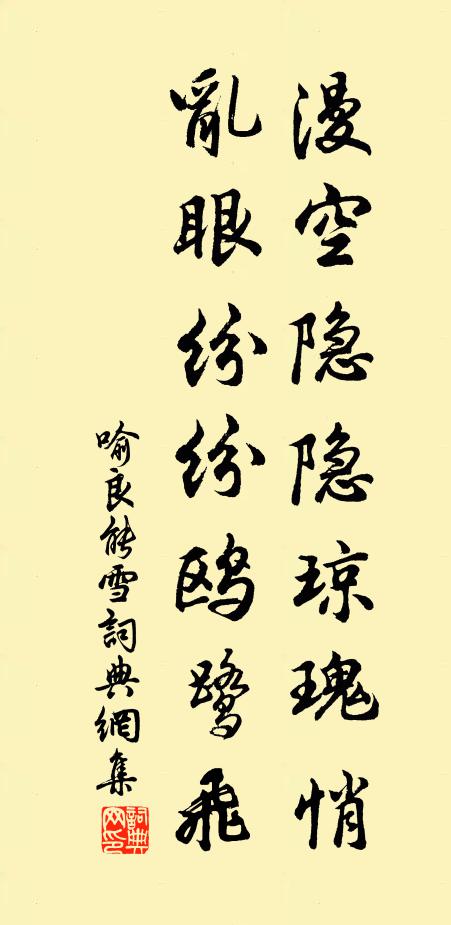 漫空隐隐琼瑰悄
亂眼纷纷鸥鹭飛
喻良能雪詞典網集
詞典网印